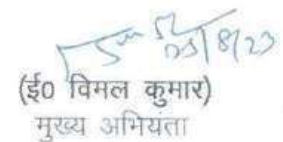 25/8/23
(ई० विमल कुमार)
मुख्य अभियंता